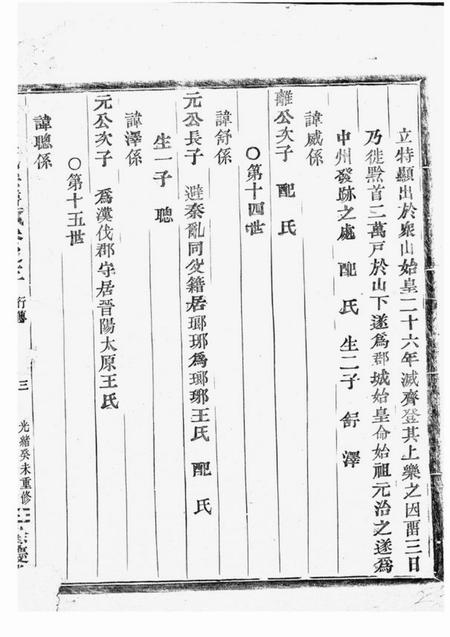 立特顯出於衆山始皇二十六年滅齊登其上樂之因畱三日
乃徙黔首三萬戸於山下遂爲郡城始皇命始祖元治之遂爲
中州發跡之處 配 氏 生二子 舒 澤
諱威係
離公次子 配 氏
〇第十四世
諱舒係
元公長子 避秦亂同父籍居瑯琊爲瑯琊王氏 配 氏
生一子 聰
諱澤係
元公次子 爲漢伐郡守居晉陽太原王氏
〇第十五世
諱聰係
行
三
光緒癸未重修
三